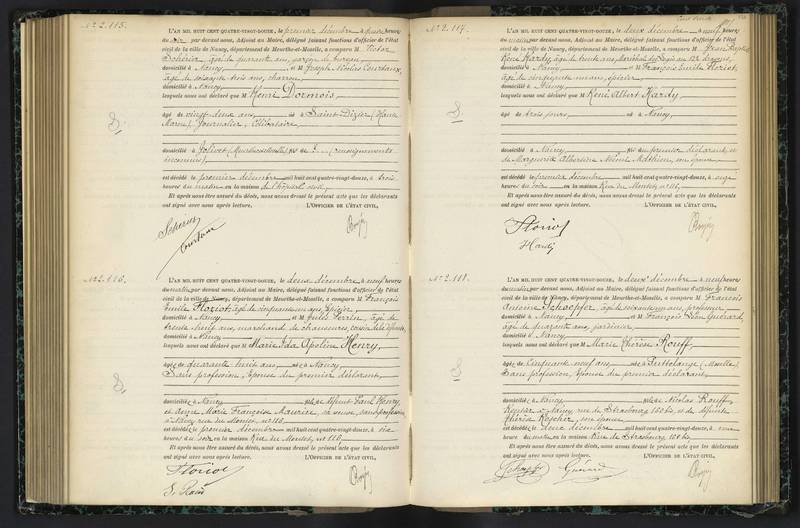 N° 2.115.
L'AN MIL HUIT CENT QUATRE-VINGT-DOUZE, le premier décembre à quatre heures
du soir par devant nous, Adjoint au Maire, délégué faisant fonctions d'officier de l'état
civil de la ville de Nancy, département de Meurthe-et-Moselle, a comparu M. Victor
âgé de quarante ans, garçon de bureau
domicilié à Nancy et M Joseph Nicolas
âgé de soixante trois ans, charron
domicilié à Nancy
lesquels nous ont déclaré que M Henri Dormois
âgé de vingt deux ans, né à Saint-Dizier (Haute
Marne) Journalier, Célibataire
domicilié à Jolivet (Meurthe et Moselle) fils de (renseignements
inconnus)
est décédé le premier décembre mil huit cent quatre-vingt-douze, à trois
heures du matin en la maison de l'hôpital civil,
Et après nous être assuré du décès, nous avons dressé le présent acte que les déclarants
ont signé avec nous après lecture. L'OFFICIER DE L'ÉTAT CIVIL,
N° 2.116.
L'AN MIL HUIT CENT QUATRE-VINGT-DOUZE, le deux décembre à neuf heures
du matin par devant nous, Adjoint au Maire, délégué faisant fonctions d'officier de l'état
civil de la ville de Nancy, département de Meurthe-et-Moselle, a comparu M François
Emile Floriot, âgé de cinquante un ans, Epicier
domicilié à Nancy et M Jules âgé de
trente huit ans, marchand de chaussures,
domicilié à Nancy
lesquels nous ont déclaré que M Marie Ida Apoline Henry,
âgée de quarante huit ans, née à Nancy,
Sans profession, Epouse du premier déclarant,
domiciliée à Nancy fille de défunt Paul Henry
et de Marie Françoise sa veuve, sans profession
à Nancy rue du Montet, n° 110
est décédée le premier décembre mil huit cent quatre-vingt-douze, à six
heures du soir, en la maison Rue du Montet, n° 110
Et après nous être assuré du décès, nous avons dressé le présent acte que les déclarants
ont signé avec nous après lecture. L'OFFICIER DE L'ÉTAT CIVIL,
Floriot
N° 2.117.
L'AN MIL HUIT CENT QUATRE-VINGT-DOUZE, le deux décembre à neuf heures
du matin par devant nous, Adjoint au Maire, délégué faisant fonctions d'officier de l'état
civil de la ville de Nancy, département de Meurthe-et-Moselle, a comparu M Jean Baptiste
René Hardy, âgé de trente ans, Maréchal des logis au 12e dragons,
domicilié à Nancy et M François Emile Floriot,
âgé de cinquante un ans, épicier
domicilié à Nancy
lesquels nous ont déclaré que M René Albert Hardy
âgé de trois jours né à Nancy,
domicilié à Nancy fils du premier déclarant et
de Marguerite Albertine Mathieu, son épouse
est décédé le premier décembre mil huit cent quatre-vingt-douze, à onze
heures du soir en la maison Rue du Montet, n° 116,
Et après nous être assuré du décès, nous avons dressé le présent acte que les déclarants
ont signé avec nous après lecture. L'OFFICIER DE L'ÉTAT CIVIL,
Floriot
Hardy
N° 2.118.
L'AN MIL HUIT CENT QUATRE-VINGT-DOUZE, le deux décembre à neuf heures
du matin par devant nous, Adjoint au Maire, délégué faisant fonctions d'officier de l'état
civil de la ville de Nancy, département de Meurthe-et-Moselle, a comparu M François
Antoine Schoepfer, âgé de soixante ans, professeur
domicilié à Nancy et M François Léon Guérard
âgé de quarante ans, jardinier
domicilié à Nancy
lesquels nous ont déclaré que M Marie Thérèse Rouff,
âgée de Cinquante neuf ans née à Puttelange (Moselle)
Sans profession, Epouse du premier déclarant,
domiciliée à Nancy fille de Nicolas Rouff
Rentier à Nancy rue de Strasbourg et de défunte
son épouse
est décédée le deux décembre mil huit cent quatre-vingt-douze, à une
heure du matin, en la maison Rue de Strasbourg
Et après nous être assuré du décès, nous avons dressé le présent acte que les déclarants
ont signé avec nous après lecture. L'OFFICIER DE L'ÉTAT CIVIL,
Guérard